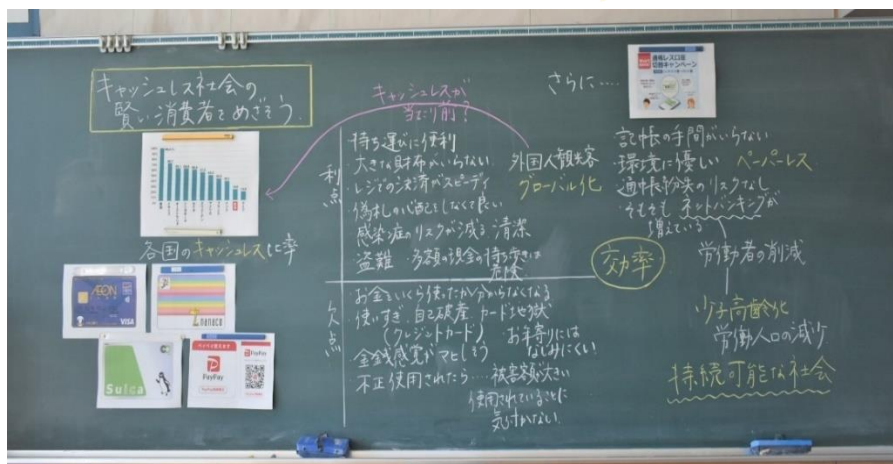 キャッシュレス社会の
賢い消費者をめざそう.
各国のキャッシュレス比率
AEON
VISA
nanaco
Suica
PayPay
PayPay
キャッシュレスが
当たり前?
利点
・持ち運びに便利
・大きな財布がいらない
・レジでの決済がスピーディ
・偽札の心配をしなくて良い
感染症のリスクが減る 清潔
・盗難 多額の現金の持ち歩きは
危険
外国人観光客
グローバル化
欠点
・お金をいくら使ったか分からなくなる
・使いすぎ・自己破産 カード地獄
(クレジットカード)
お年寄りには
なじみにくい
・金銭感覚がマヒしそう
・不正使用されたら…被害額が大きい
使用されていることに
気づかない
さらに……
通帳レス口座
切替キャンペーン
記帳の手間がいらない
・環境に優しい ペーパーレス
・通帳紛失のリスクなし
・そもそもネットバンキングが
増えている
効率
労働者の削減
少子高齢化
労働人口の減少
持続可能な社会